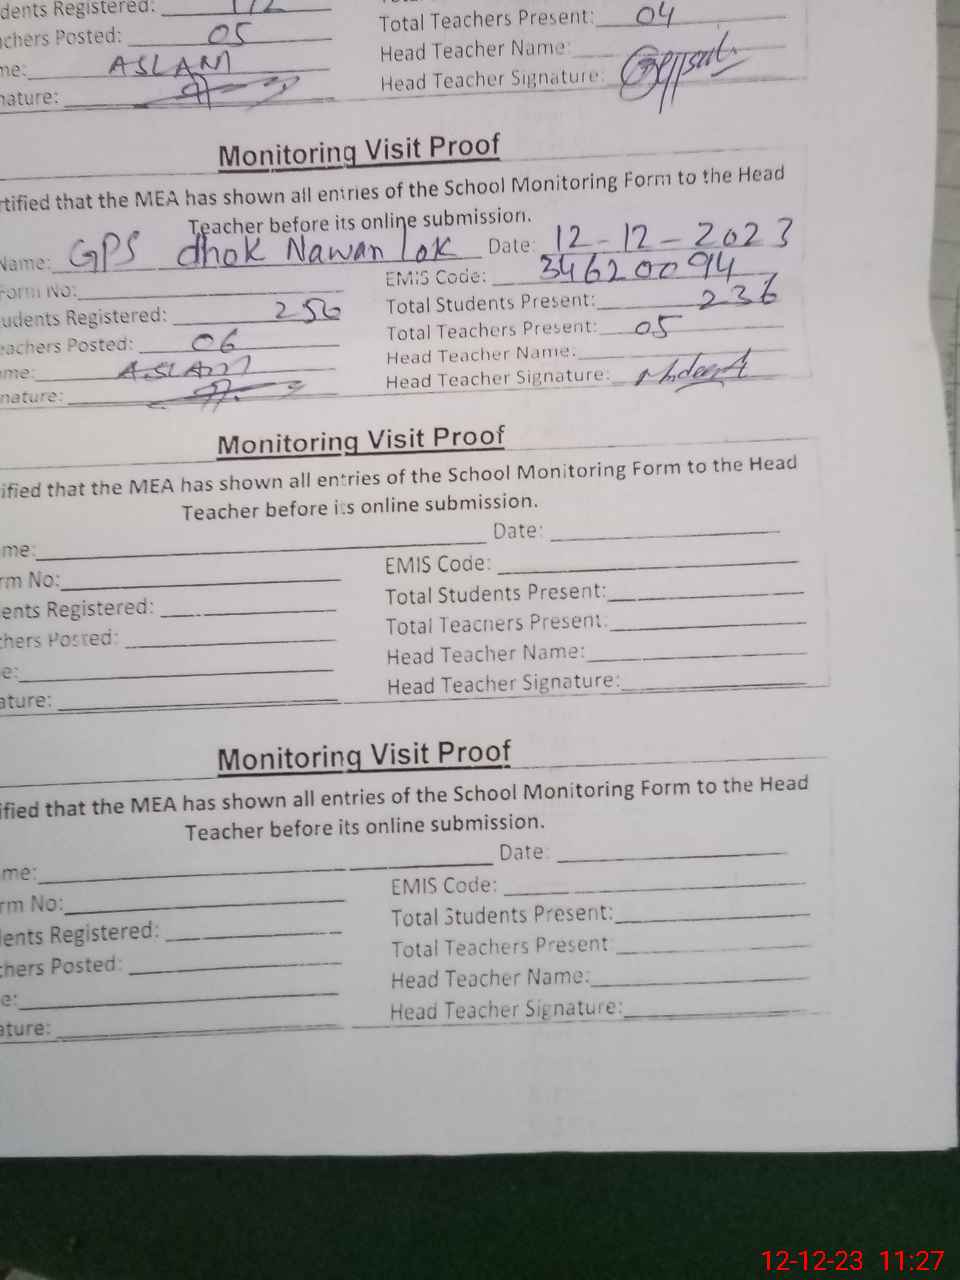 dents Registered: 172
Total Teachers Present: 04
chers Posted: 05
Head Teacher Name:
me: ASLAM
Head Teacher Signature:
nature:
Monitoring Visit Proof
rtified that the MEA has shown all entries of the School Monitoring Form to the Head
Teacher before its online submission.
Name: GPS dhok Nawan lok Date: 12-12-2023
Form No: EMIS Code: 34620094
udents Registered: 256 Total Students Present: 236
eachers Posted: 06 Total Teachers Present: 05
me: ASLAM Head Teacher Name:
nature: Head Teacher Signature:
Monitoring Visit Proof
ified that the MEA has shown all entries of the School Monitoring Form to the Head
Teacher before its online submission.
me: Date:
rm No: EMIS Code:
ents Registered: Total Students Present:
chers Posted: Total Teachers Present:
e: Head Teacher Name:
ature: Head Teacher Signature:
Monitoring Visit Proof
ified that the MEA has shown all entries of the School Monitoring Form to the Head
Teacher before its online submission.
me: Date:
rm No: EMIS Code:
dents Registered: Total Students Present:
chers Posted: Total Teachers Present
e: Head Teacher Name:
ature: Head Teacher Signature:
12-12-23 11:27